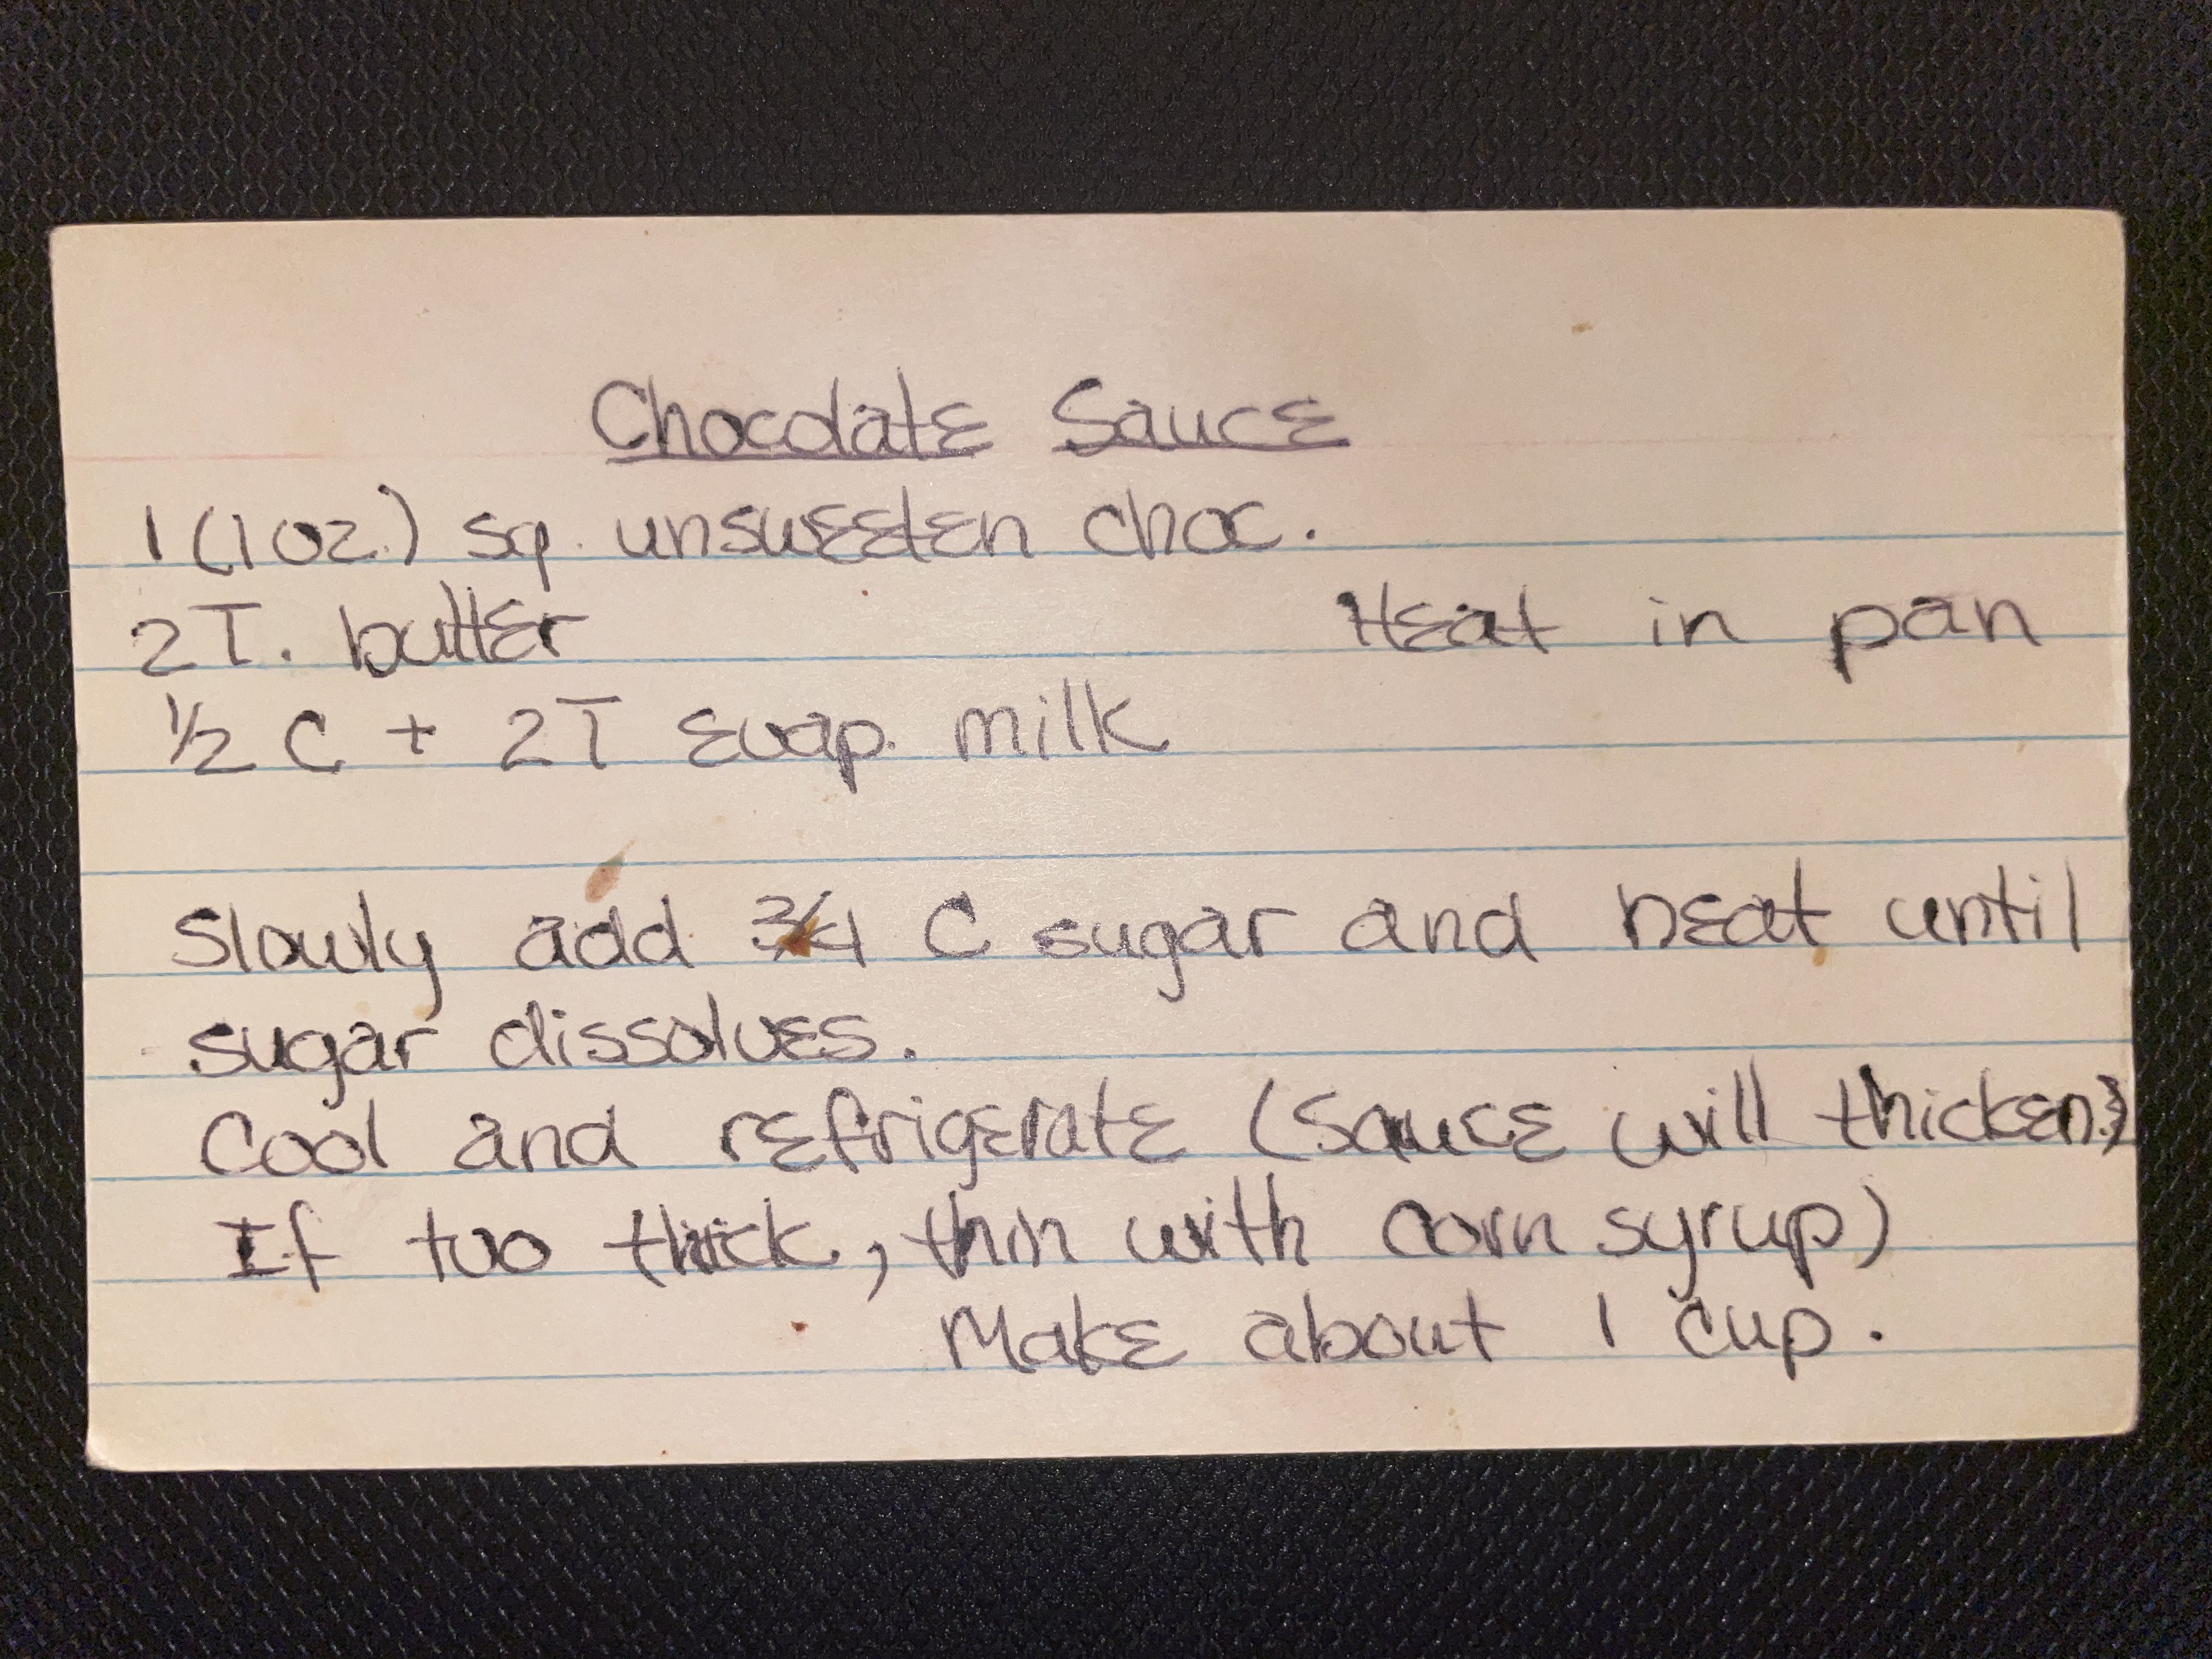 Chocolate Sauce
1 (1 oz.) sq. unsweeten choc.
2 T. butter Heat in pan
½ C + 2T evap. milk
Slowly add 3/4 C sugar and heat until
sugar dissolves.
Cool and refrigerate (sauce will thicken.)
If too thick, thin with corn syrup)
Make about 1 cup.